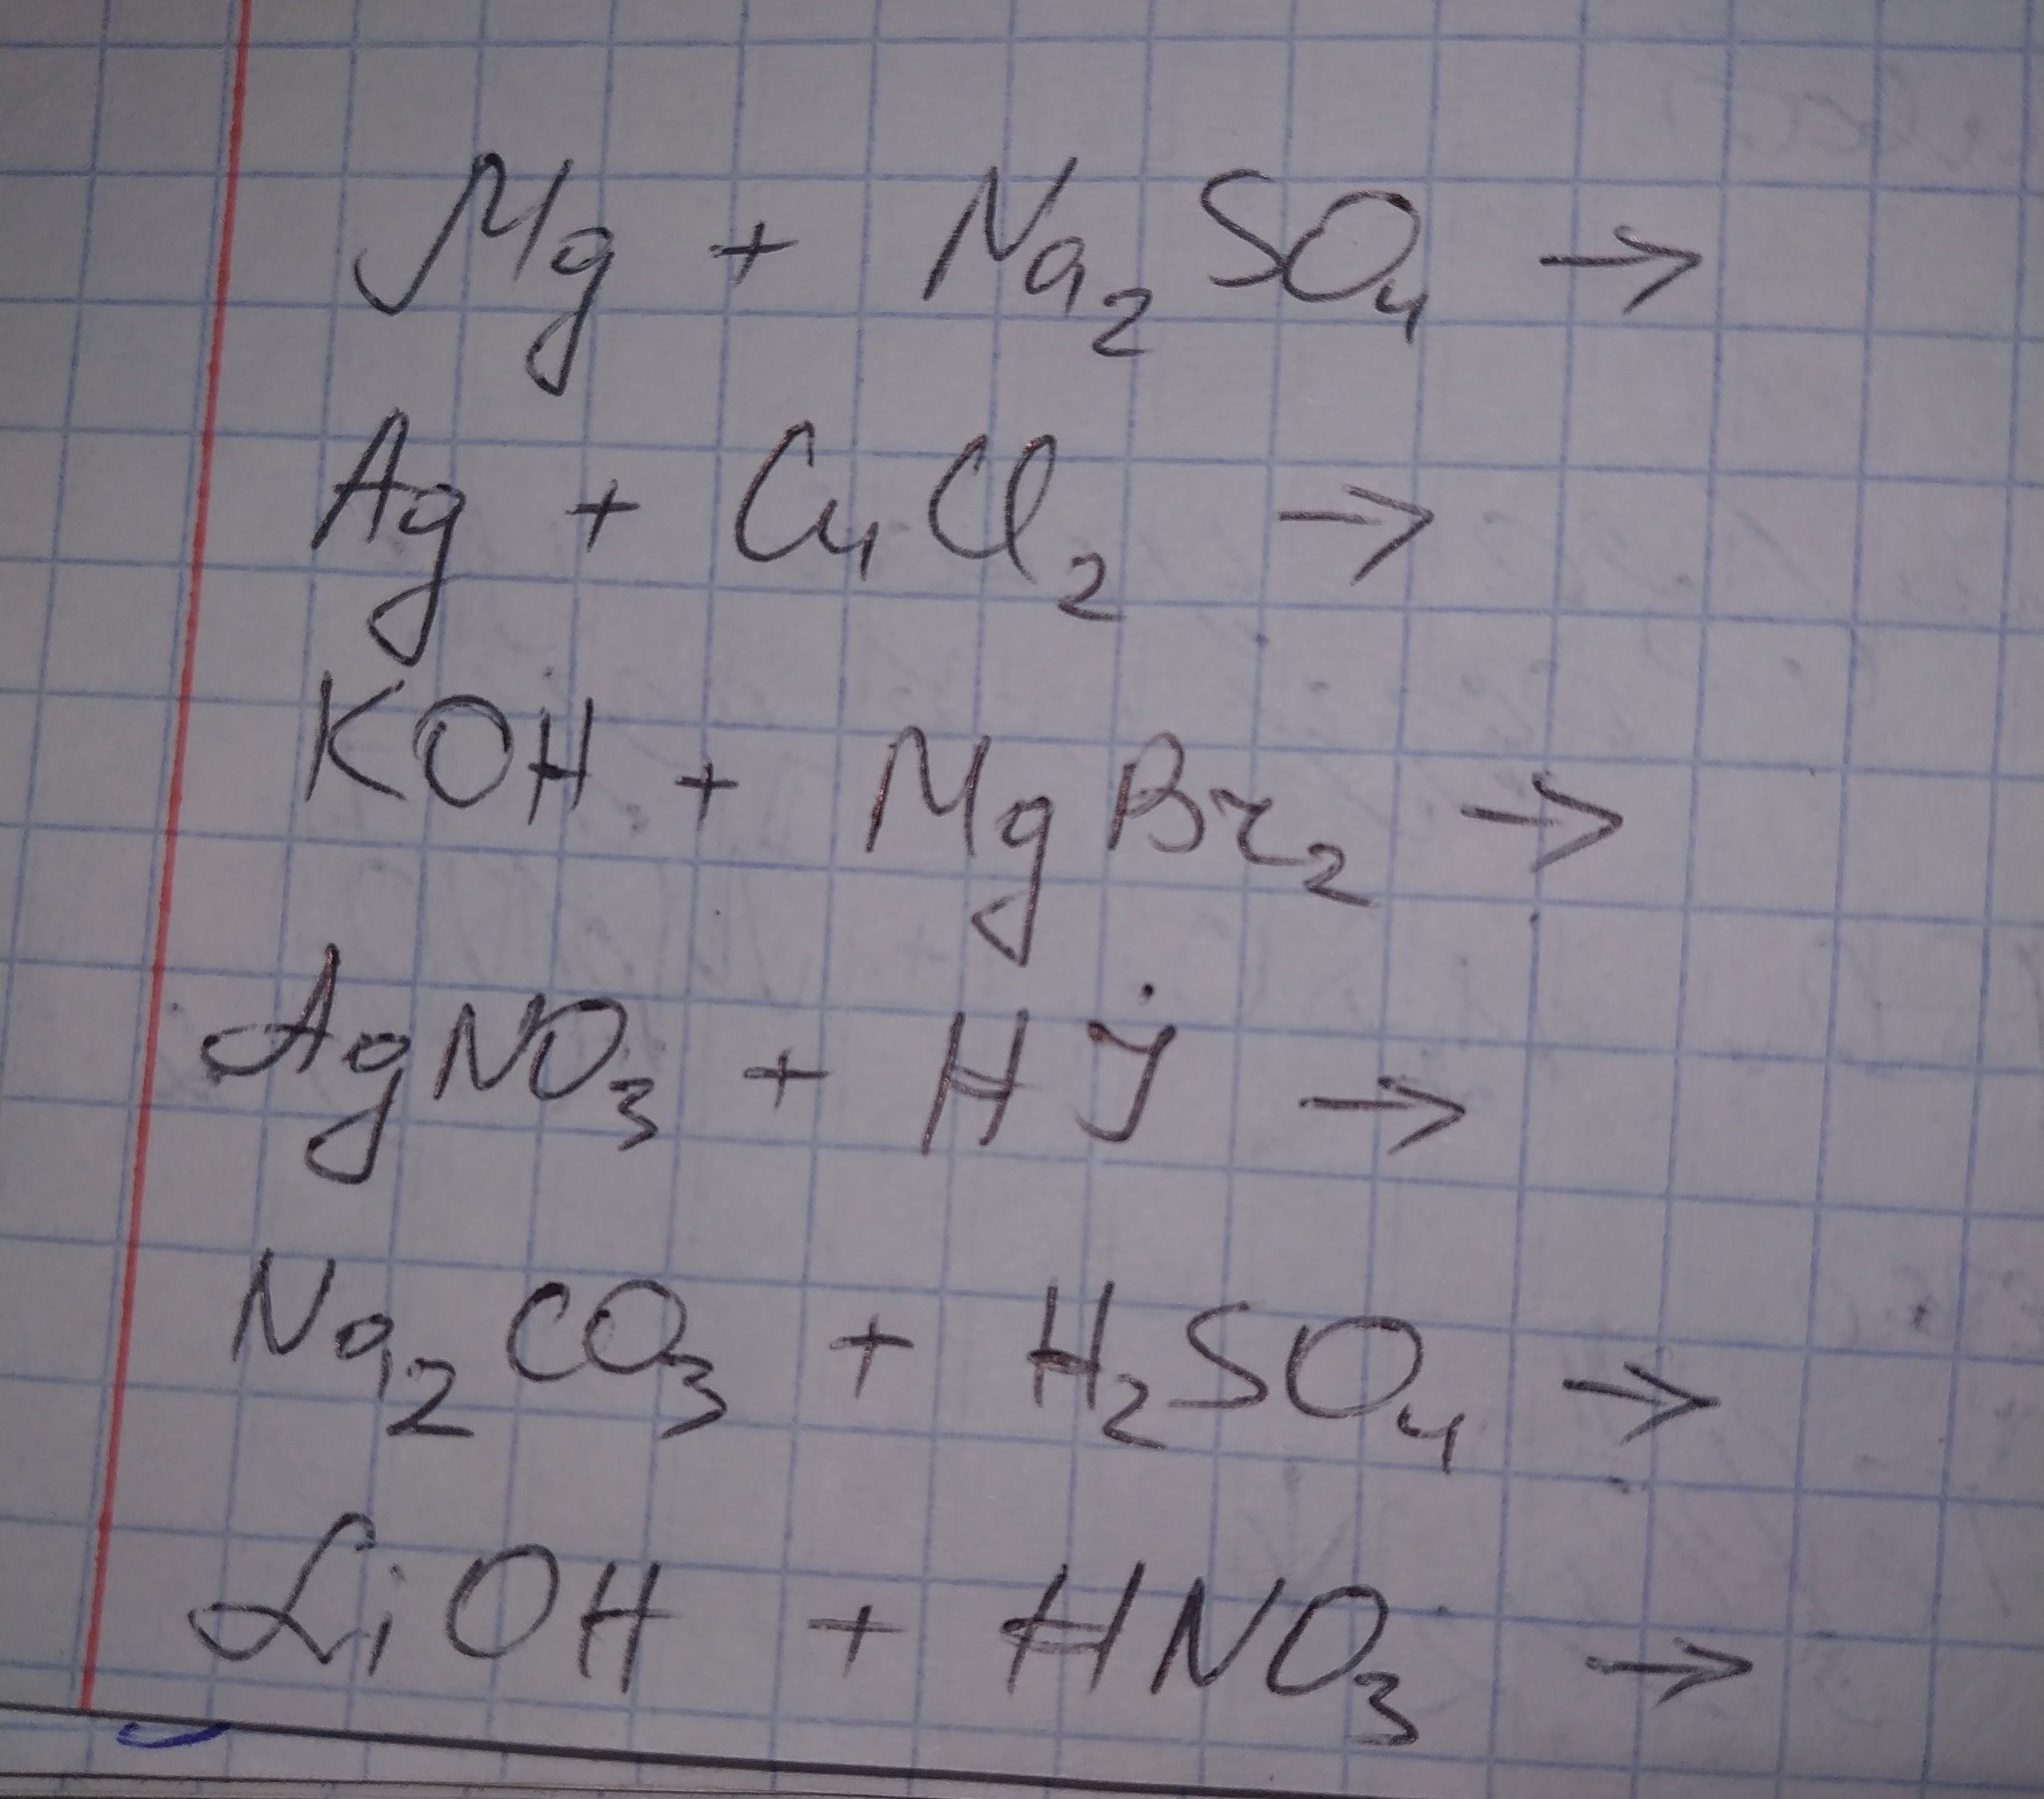 Mg + Na₂SO₄ →
Ag + CuCl₂ →
KOH + MgBr₂ →
AgNO₃ + HJ →
Na₂CO₃ + H₂SO₄ →
LiOH + HNO₃ →